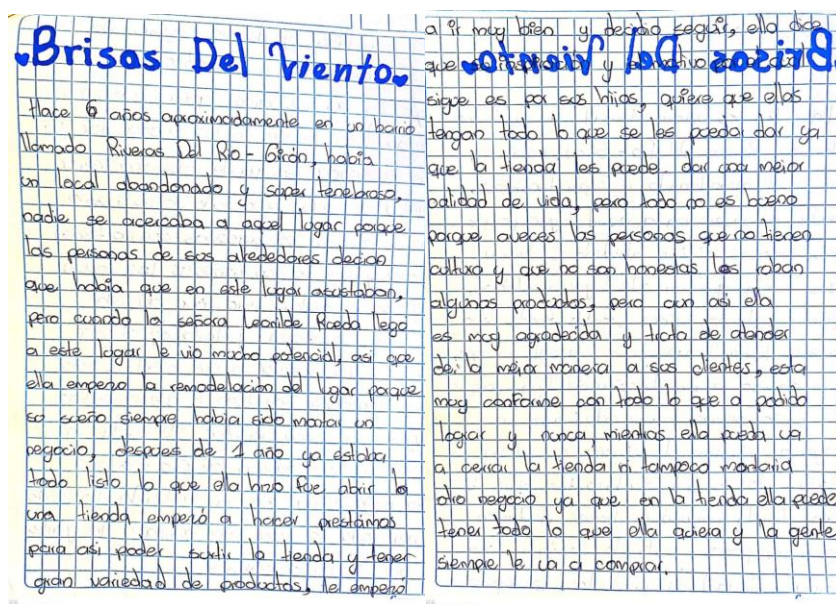 Brisas Del Viento
Hace 6 años aproximadamente en un barrio
llamado Riveras Del Rio - Girón, habia
un local abandonado y super tenebroso,
nadie se acercaba a aquel lugar porque
las personas de sus alrededores decian
que habia que en este lugar asustaban,
pero cuando la señora Leonilde Rueda llego
a este lugar le vio mucho potencial, asi que
ella empezo la remodelación del lugar porque
su sueño siempre habia sido montar un
negocio, despues de 1 año ya estaba
todo listo lo que ella hizo fue abrir
una tienda empezó a hacer prestámos
para asi poder surtir la tienda y tener
gran variedad de productos, le empezó
a ir muy bien y decidio seguir, ella dice
que y
sigue es por sus hijos, quiere que ellos
tengan todo lo que se les pueda dar ya
que la tienda les puede dar una mejor
calidad de vida, pero todo no es bueno
porque aveces las personas que no tienen
cultura y que no son honestas les roban
algunos productos, pero aun asi ella
es muy agradecida y trata de atender
de la mejor manera a sus clientes, esta
muy conforme con todo lo que a podido
lograr y nunca, mientras ella pueda va
a cerrar la tienda ni tampoco montaria
otro negocio ya que en la tienda ella puede
tener todo lo que ella quiera y la gente
siempre le va a comprar.